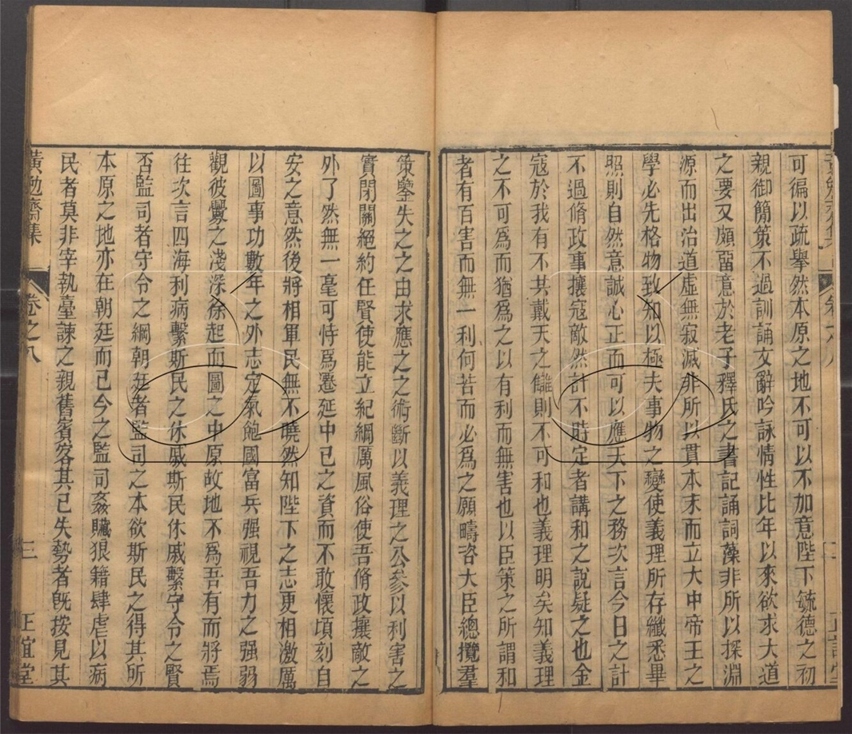 可徧以疏舉然本原之地不可以不加意陛下毓德之初
親御簡策不過訓誦文辭吟詠情性比年以來欲求大道
之要又頗畱意於老子釋氏之書記誦詞藻非所以探淵
源而出治道虛無寂滅非所以貫本末而立大中帝王之
學必先格物致知以極夫事物之變使義理所存纖悉畢
照則自然意誠心正而可以應天下之務次言今日之計
不過脩政事攘寇敵然計不時定者講和之說疑之也金
寇於我有不共戴天之讎則不可和也義理明矣知義理
之不可爲而猶爲之以有利而無害也以臣策之所謂和
者有百害而無一利何苦而必爲之願疇咨大臣總攬羣
策鑒失之之由求應之之術斷以義理之公參以利害之
實閉關絕約任賢使能立紀綱厲風俗使吾脩政攘敵之
外了然無一毫可恃爲遷延中已之資而不敢懷頃刻自
安之意然後將相軍民無不曉然知陛下之志更相激厲
以圖事功數年之外志定氣飽國富兵强視吾力之强弱
觀彼釁之淺深徐起而圖之中原故地不爲吾有而將焉
往次言四海利病繫斯民之休戚斯民休戚繫守令之賢
否監司者守令之綱朝廷者監司之本欲斯民之得其所
本原之地亦在朝廷而已今之監司姦贓狠籍肆虐以病
民者莫非宰執臺諫之親舊賓客其已失勢者旣按見其
黃勉齋集 卷之八 三 正誼堂